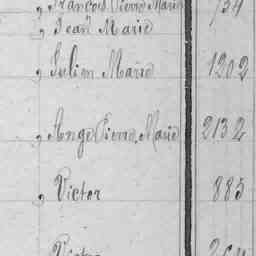 , François Pierre Marie 734
, Jean Marie
, Julien Marie 1202
, Ange Pierre Marie 2132
, Victor 885